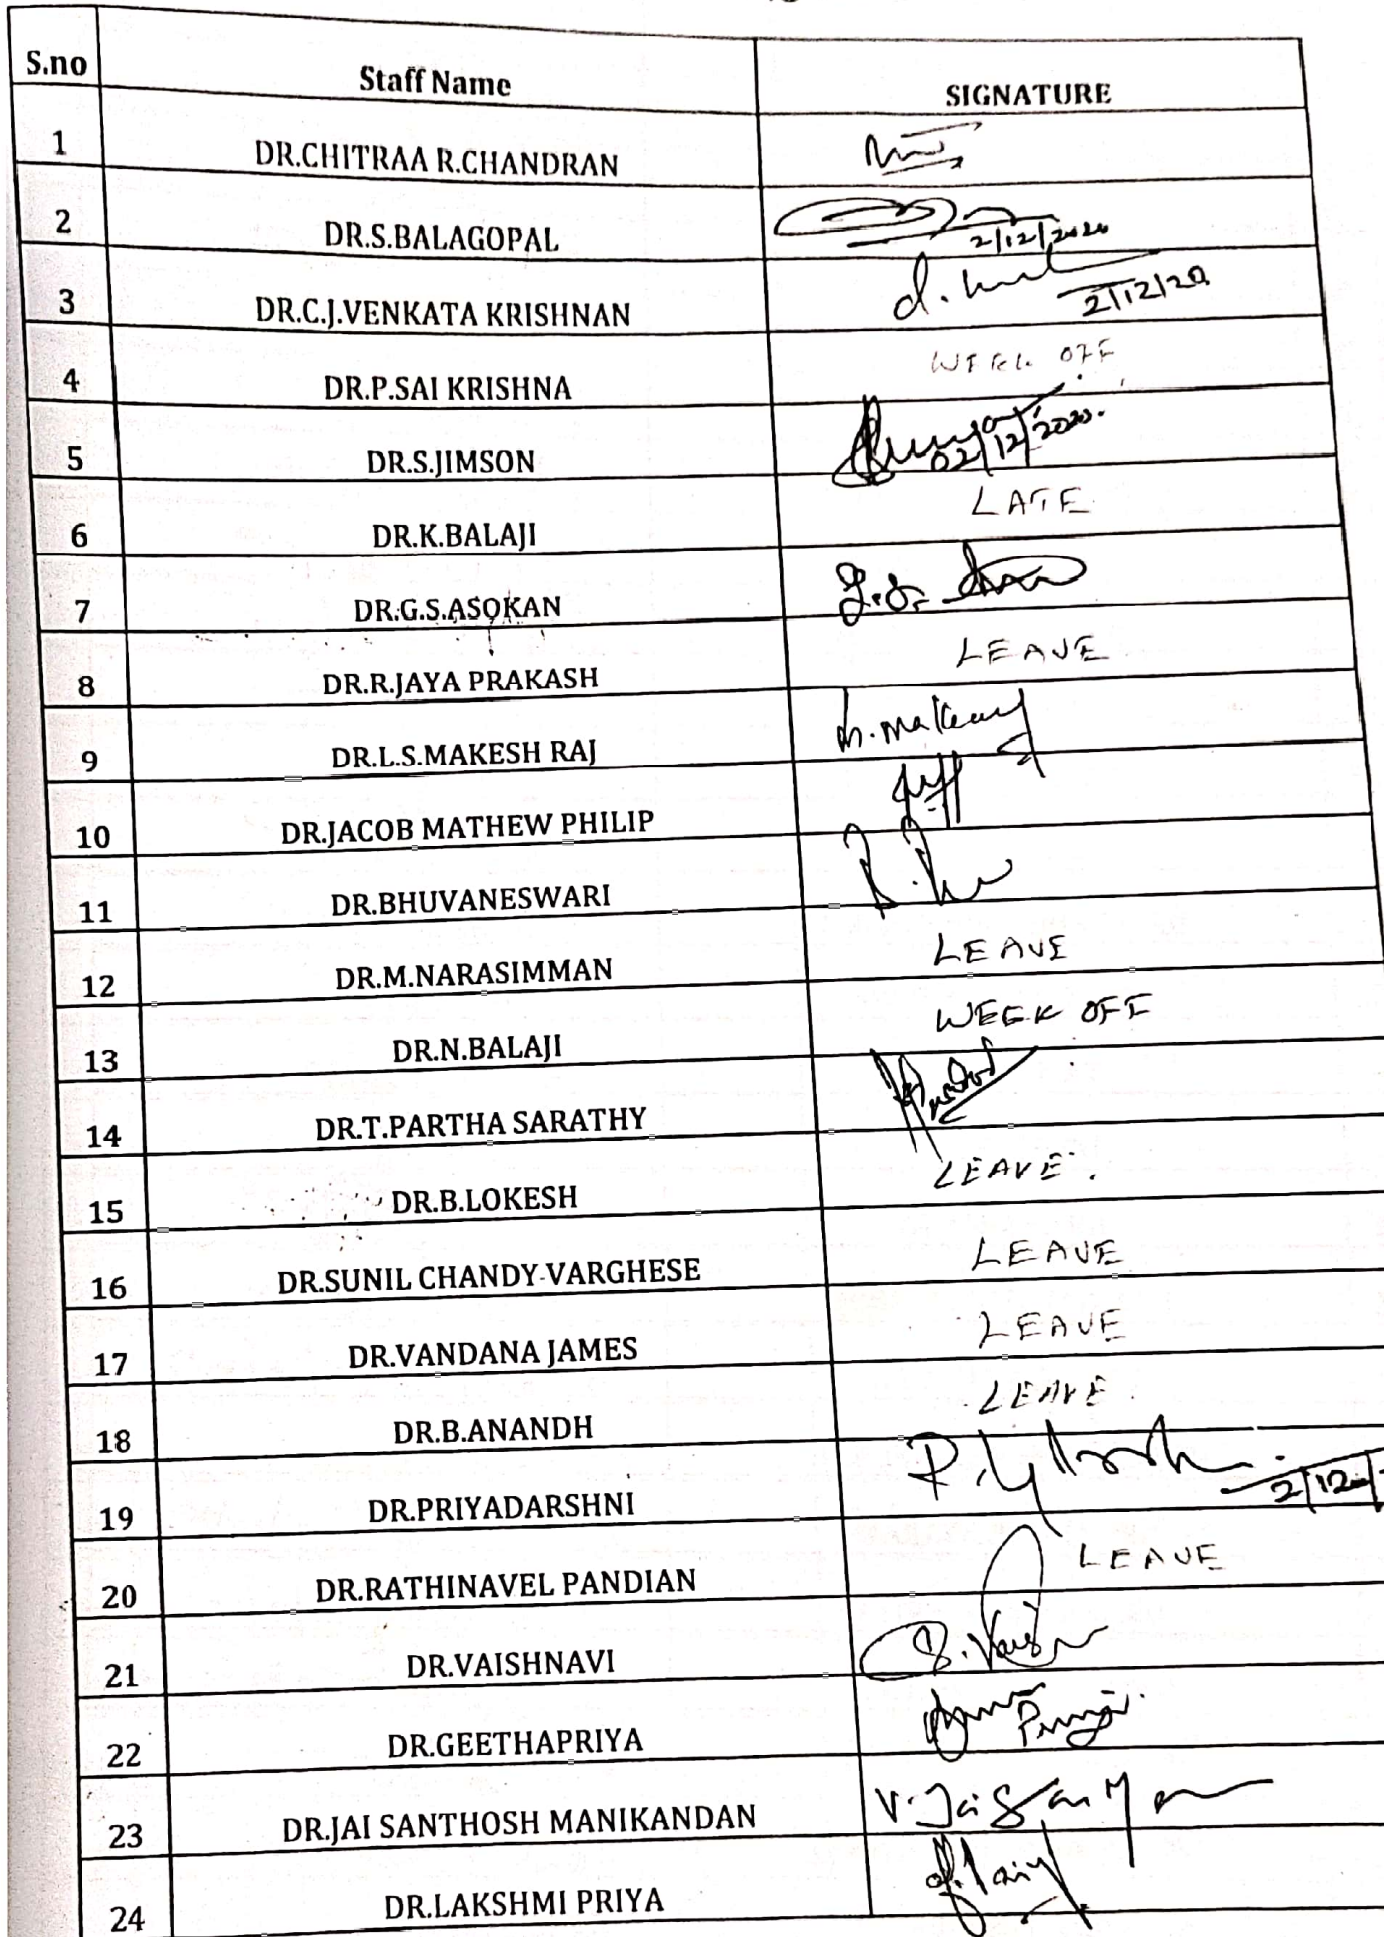 S.no Staff Name SIGNATURE
1 DR.CHITRAA R.CHANDRAN
2 DR.S.BALAGOPAL 2/12/2020
3 DR.C.J.VENKATA KRISHNAN 2/12/20
4 DR.P.SAI KRISHNA WEEK OFF
5 DR.S.JIMSON 02/12/2020.
6 DR.K.BALAJI LATE
7 DR.G.S.ASOKAN
8 DR.R.JAYA PRAKASH LEAVE
9 DR.L.S.MAKESH RAJ
10 DR.JACOB MATHEW PHILIP
11 DR.BHUVANESWARI
12 DR.M.NARASIMMAN LEAVE
13 DR.N.BALAJI WEEK OFF
14 DR.T.PARTHA SARATHY
15 DR.B.LOKESH LEAVE.
16 DR.SUNIL CHANDY VARGHESE LEAVE
17 DR.VANDANA JAMES LEAVE
18 DR.B.ANANDH LEAVE
19 DR.PRIYADARSHNI 2/12
20 DR.RATHINAVEL PANDIAN LEAVE
21 DR.VAISHNAVI
22 DR.GEETHAPRIYA
23 DR.JAI SANTHOSH MANIKANDAN
24 DR.LAKSHMI PRIYA